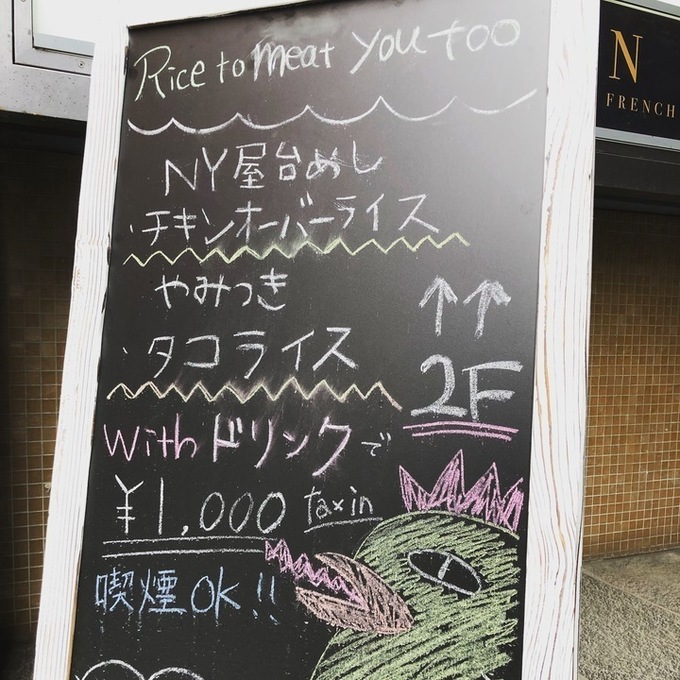 Rice to meat you too
NY屋台めし
・チキンオーバーライス
やみつき
・タコライス
↑↑
2F
withドリンクで
¥1,000 tax in
喫煙OK!!
N
FRENCH